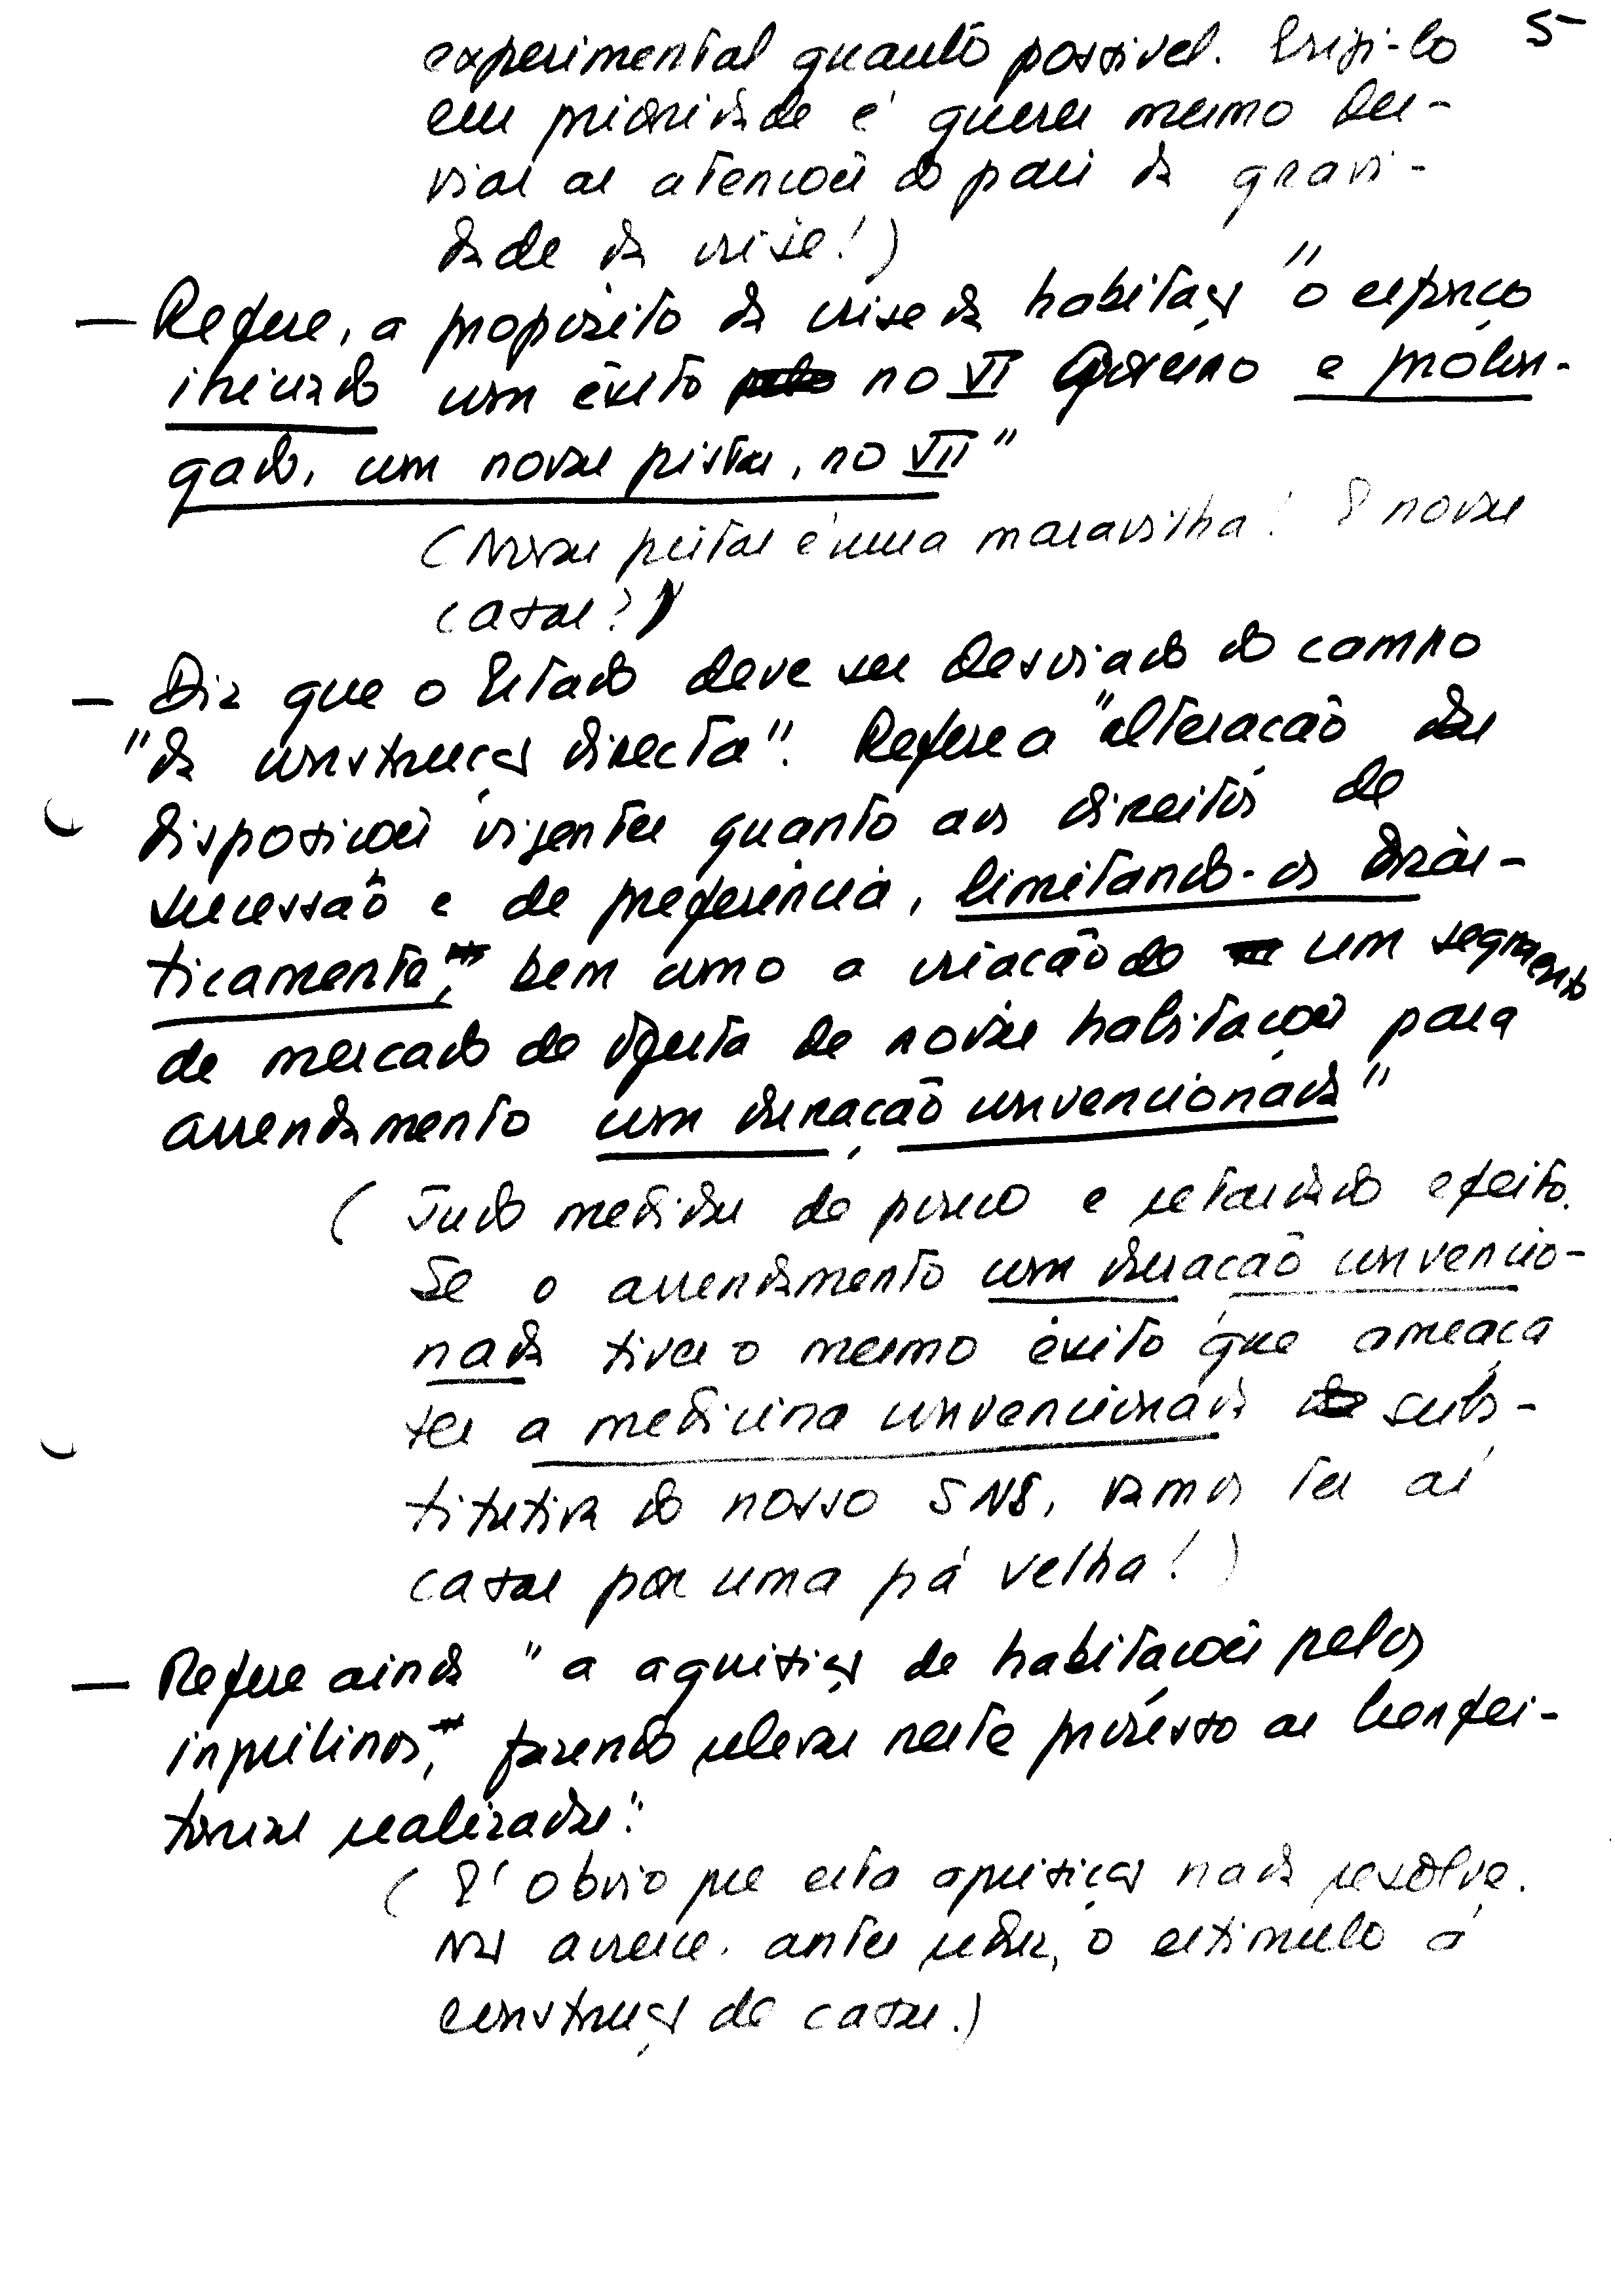 5
experimental quanto possivel. Erigi-lo
em prioridade é querer mesmo des-
viar as atenções do país da gravi-
dade da crise!)
— Refere, a propósito da crise da habitação "o esforço
iniciado com êxito no VI Governo e prolon-
gado, com novas pistas, no VII"
(Novas pistas é uma maravilha! E novas
casas?)
— Diz que o Estado deve ser desviado do campo
"da construção directa". Refere a "alteração das
disposições vigentes quanto aos direitos de
sucessão e de preferência, limitando-os drás-
ticamente, bem como a criação de um segmento
de mercado de oferta de novas habitações para
arrendamento com duração convencionada"
(Tudo medidas de pouco e retardado efeito.
Se o arrendamento com duração convencio-
nada tiver o mesmo êxito que ameaça
ter a medicina convencionada subs-
titutiva do nosso SNS, vamos ter aí
casas por uma pá velha!)
— Refere ainda "a aquisição de habitações pelos
inquilinos, fazendo relevar neste processo as benfei-
torias realizadas".
(É óbvio que esta aquisição nada resolve.
Não acresce. antes reduz, o estímulo à
construção de casas.)